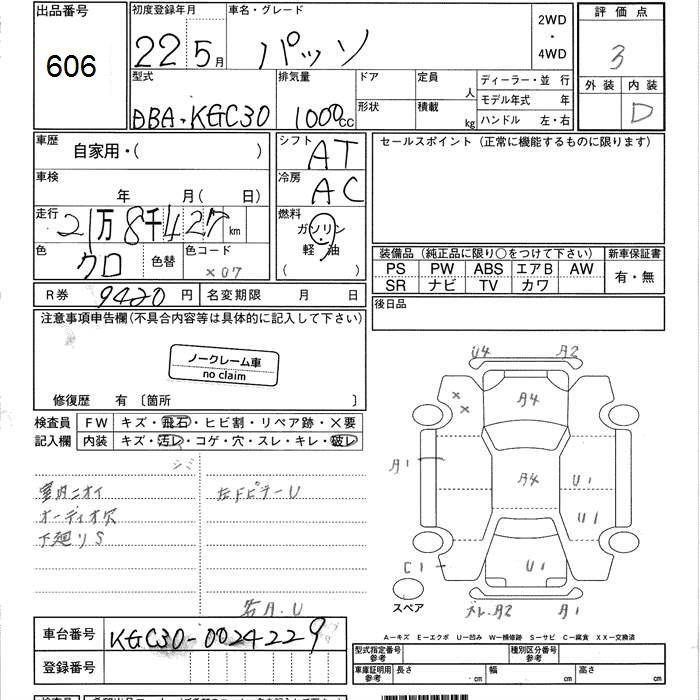 出品番号
606
初度登録年月
22 5月
車名・グレード
パッソ
2WD
・
4WD
評価点
3
外装 内装
D
型式
DBA・KGC30
排気量
1000cc
ドア
形状
定員
人
積載
kg
ディーラー・並行
モデル年式 年
ハンドル 左・右
車歴
自家用・( )
シフト
AT
セールスポイント (正常に機能するものに限ります)
車検
年 月( 日)
冷房
AC
走行
21万8千427km
燃料
ガソリン
軽油
( )
色
クロ
色替
色コード
X07
装備品 (純正品に限り○をつけて下さい)
新車保証書
PS PW ABS エアB AW
有・無
SR ナビ TV カワ
R券 9420円
名変期限 月 日
後日品
注意事項申告欄(不具合内容等は具体的に記入して下さい)
ノークレーム車
no claim
修復歴 有 〔箇所 〕
検査員 FW キズ・飛石・ヒビ割・リペア跡・×要
記入欄 内装 キズ・汚レ・コゲ・穴・スレ・キレ・破レ
シミ
室内ニオイ
オーディオ穴
下廻りS
左Fピラー U
右A.U
U4 A2
× ×
A4
A1
A4
U1
U1
C1
U1
スペア
ズレ.A2 A1
A‐キズ E‐エクボ U‐凹み W‐補修跡 S‐サビ C‐腐食 XX‐交換済
車台番号 KGC30-0024229
登録番号
型式指定番号
参考
種別区分番号
参考
車庫証明用
参考
長さ ・cm
幅 ・cm
高さ ・cm